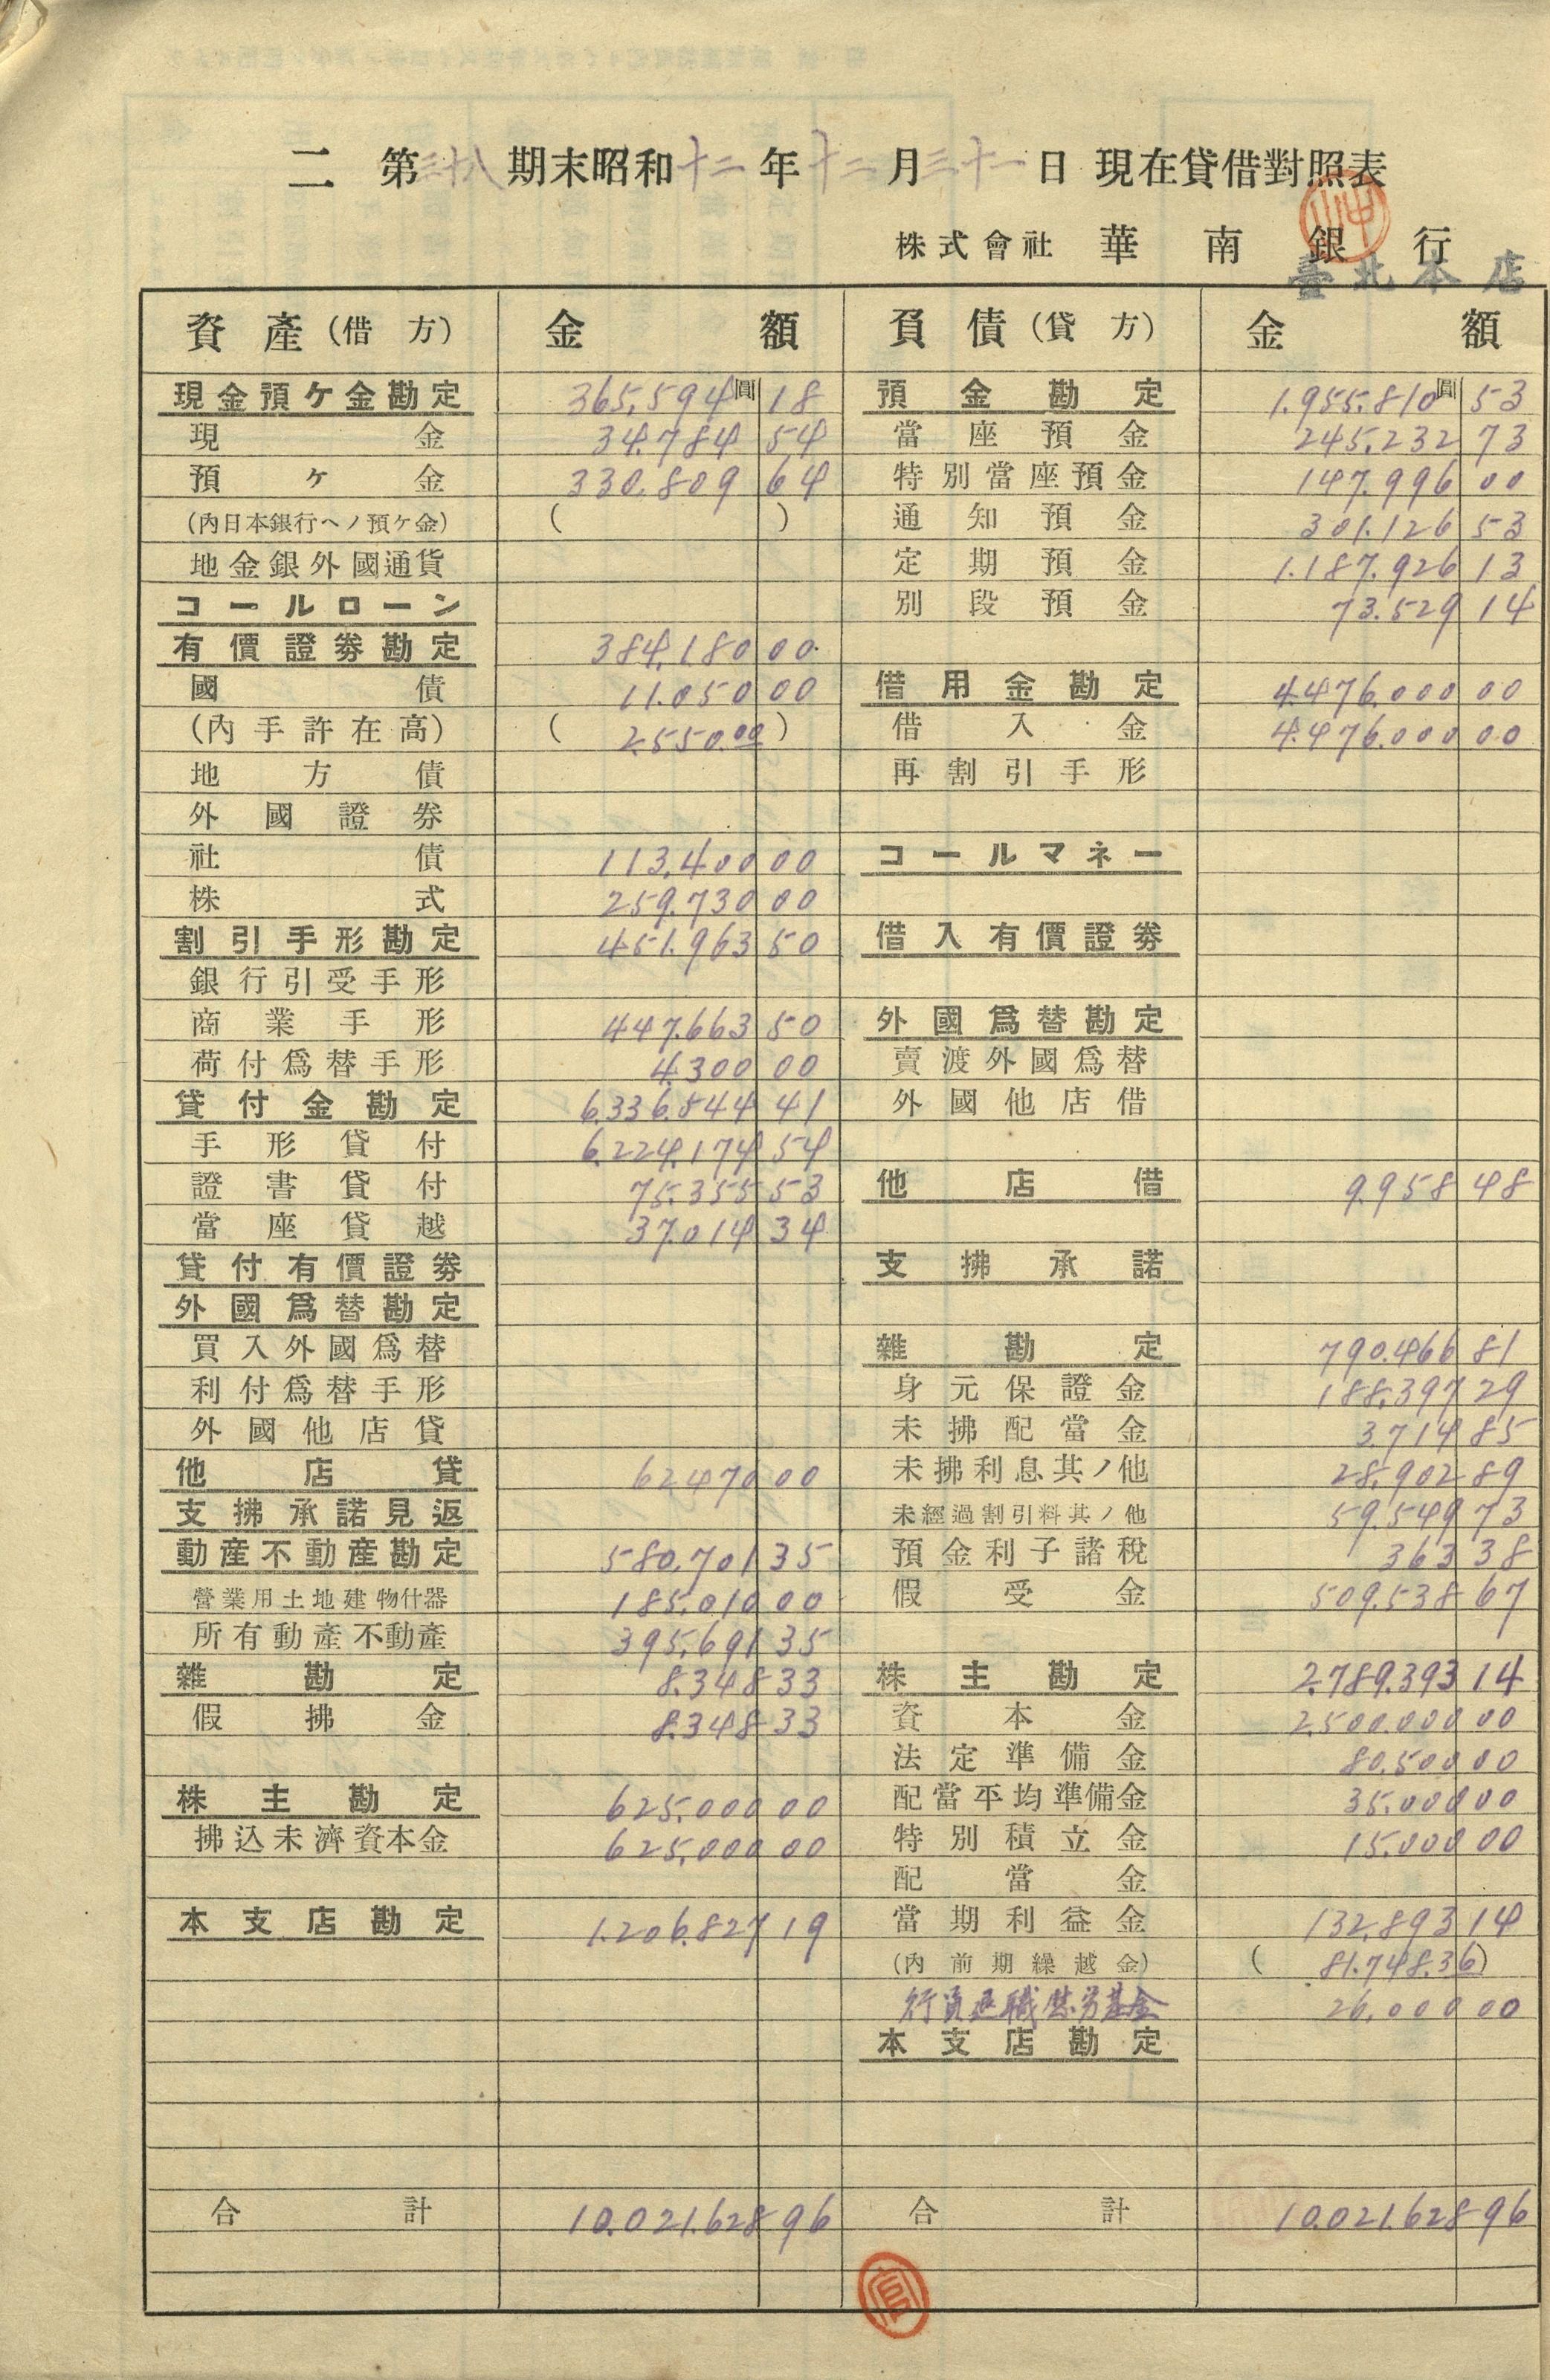 二 第三十八期末昭和十二年十二月三十一日 現在貸借對照表
株式會社 華南銀行
臺北本店
資產(借方) 金額
現金預ケ金勘定 365,594圓18
現金 34.784 54
預ケ金 330.809 64
(內日本銀行ヘノ預ケ金) ( )
地金銀外國通貨
コールローン
有價證券勘定 384.180 00
國債 11.050 00
(內手許在高) (2.550.00)
地方債
外國證券
社債 113.400 00
株式 259.730 00
割引手形勘定 451.963 50
銀行引受手形
商業手形 447.663 50
荷付爲替手形 4.300 00
貸付金勘定 6.336.544 41
手形貸付 6.224.174 54
證書貸付 75.355 53
當座貸越 37.014 34
貸付有價證券
外國爲替勘定
買入外國爲替
利付爲替手形
外國他店貸
他店貸 62.470 00
支拂承諾見返
動產不動產勘定 580.701 35
營業用土地建物什器 185.010 00
所有動產不動產 395.691 35
雜勘定 8.348 33
假拂金 8.348 33
株主勘定 625.000 00
拂込未濟資本金 625.000 00
本支店勘定 1.206.827 19
合計 10.021.628 96
負債(貸方) 金額
預金勘定 1.955.810圓53
當座預金 245.232 73
特別當座預金 147.996 00
通知預金 301.126 53
定期預金 1.187.926 13
別段預金 73.529 14
借用金勘定 4.476.000 00
借入金 4.476.000 00
再割引手形
コールマネー
借入有價證券
外國爲替勘定
賣渡外國爲替
外國他店借
他店借 9.958 48
支拂承諾
雜勘定 790.466 81
身元保證金 188.397 29
未拂配當金 3.714 85
未拂利息其ノ他 28.902 89
未經過割引料其ノ他 59.549 73
預金利子諸稅 363 38
假受金 509.538 67
株主勘定 2.789.393 14
資本金 2.500.000 00
法定準備金 80.500 00
配當平均準備金 35.000 00
特別積立金 15.000 00
配當金
當期利益金 132.893 14
(內前期繰越金) (81.748.36)
行員退職慰勞基金 26.000 00
本支店勘定
合計 10.021.628 96